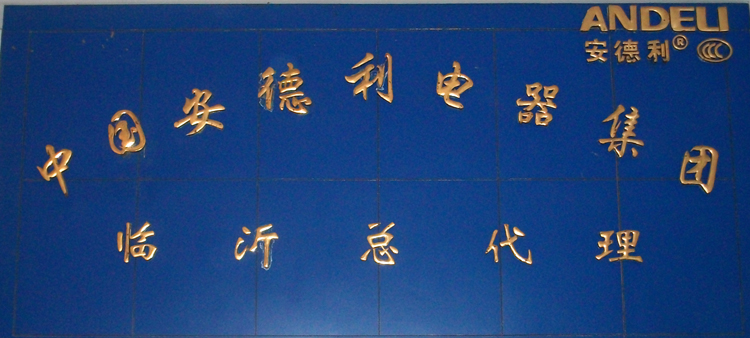 ANDELI
安德利®
中国安德利电器集团
临沂总代理